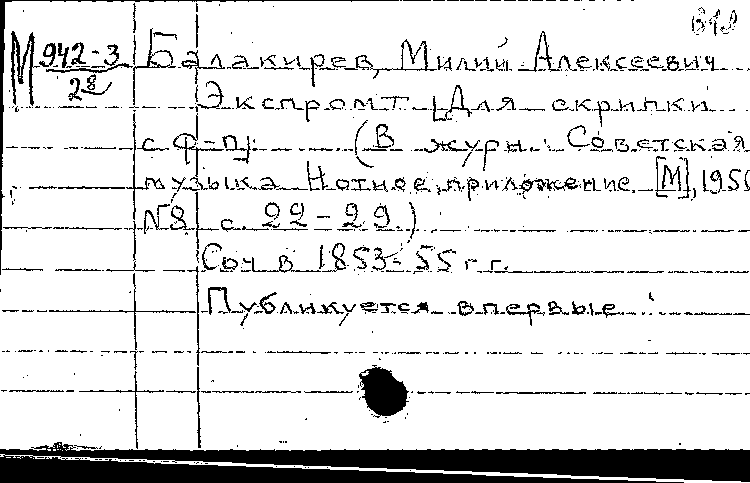 М 942-3
28
Балакирев, Милий Алексеевич
Экспромт. [Для скрипки
с ф-п]. (В журн.: Советская
музыка Нотное приложение. [М], 195
№8 с. 22-29.)
Соч в 1853-55 гг.
Публикуется впервые.